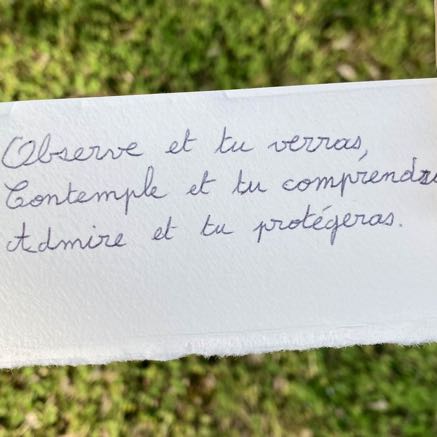 Observe et tu verras,
Contemple et tu comprendr
Admire et tu protégeras.